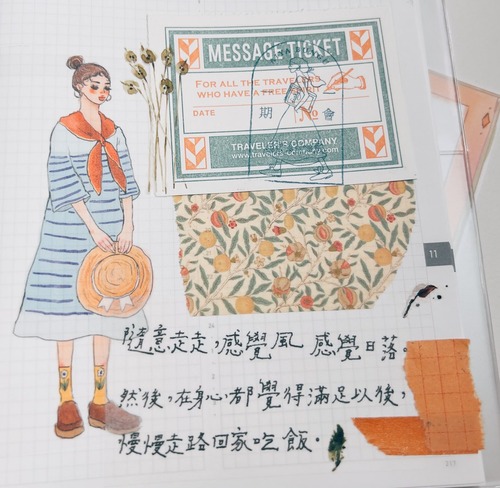 MESSAGE TICKET
FOR ALL THE TRAVELERS
WHO HAVE A FREE SPIRIT
DATE
期 No 會
TRAVELER'S COMPANY
www.travelers-company.com
11
隨意走走,感覺風 感覺日落。
然後,在身心都覺得滿足以後,
慢慢走路回家吃飯.